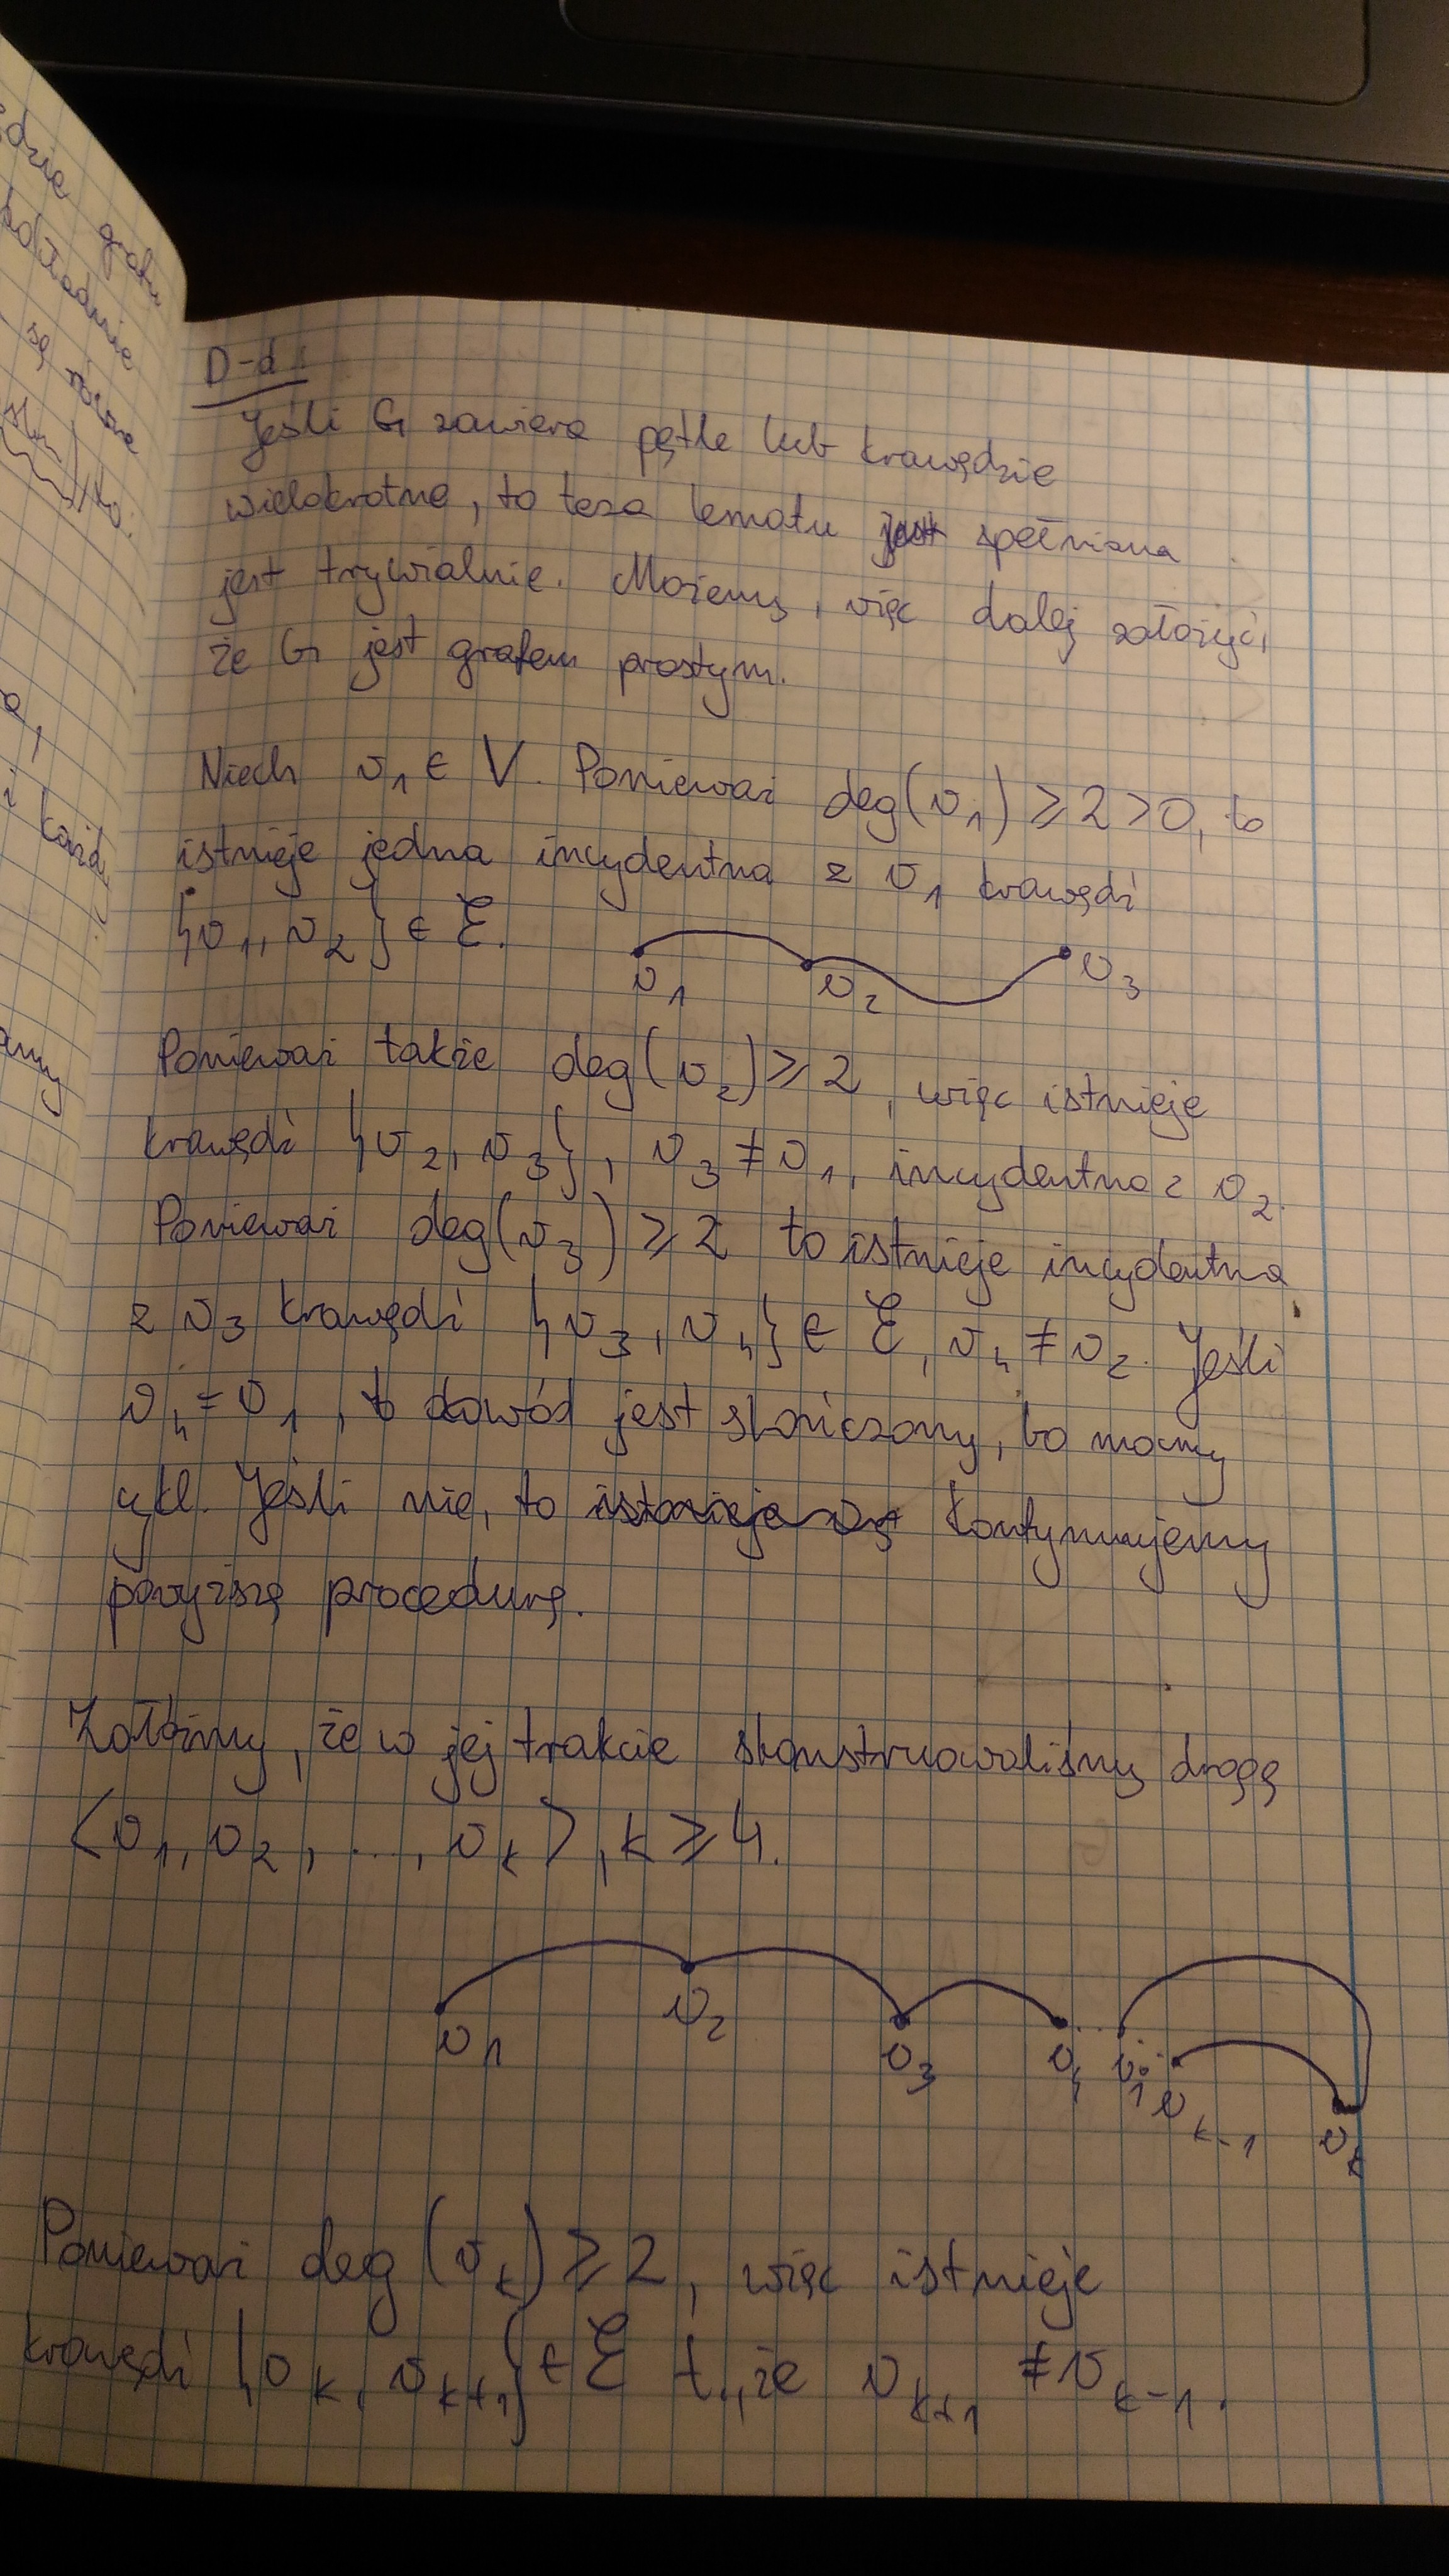 D-d:
Jeśli G zawiera pętle lub krawędzie
wielokrotne, to teza lematu spełniona
jest trywialnie. Możemy, więc dalej założyć,
że G jest grafem prostym.
Niech v₁ ∈ V. Ponieważ deg(v₁) ≥ 2 > 0, to
istnieje jedna incydentna z v₁ krawędź
{v₁, v₂} ∈ E.
v₁ v₂ v₃
Ponieważ także deg(v₂) ≥ 2, więc istnieje
krawędź {v₂, v₃}, v₃ ≠ v₁, incydentna z v₂.
Ponieważ deg(v₃) ≥ 2 to istnieje incydentna
z v₃ krawędź {v₃, v₄} ∈ E, v₄ ≠ v₂. Jeśli
v₄ = v₁, to dowód jest skończony, bo mamy
cykl. Jeśli nie, to kontynuujemy
powyższą procedurę.
Załóżmy, że w jej trakcie skonstruowaliśmy drogę
⟨v₁, v₂, ..., vₖ⟩, k ≥ 4.
v₁ v₂ v₃ v₄ vⱼ vₖ₋₁ vₖ
Ponieważ deg(vₖ) ≥ 2, więc istnieje
krawędź {vₖ, vₖ₊₁} ∈ E t., że vₖ₊₁ ≠ vₖ₋₁.